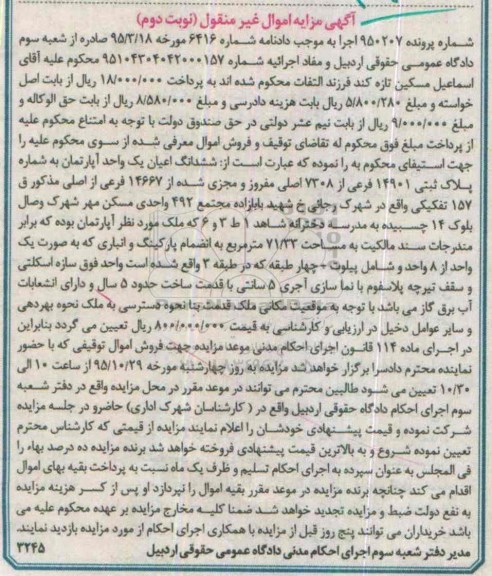 آگهی مزایه اموال غیر منقول (نوبت دوم)
شماره پرونده ۹۵۰۲۰۷ اجرا به موجب دادنامه شماره ۶۴۱۶ مورخه ۹۵/۳/۱۸ صادره از شعبه سوم
دادگاه عمومی حقوقی اردبیل و مفاد اجرائیه شماره ۹۵۱۰۴۳۰۴۰۴۲۰۰۰۱۵۷ محکوم علیه آقای
اسماعیل مسکین تازه کند فرزند التفات محکوم شده اند به پرداخت ۱۸/۰۰۰/۰۰۰ ریال از بابت اصل
خواسته و مبلغ ۵/۸۰۰/۲۸۰ ریال بابت هزینه دادرسی و مبلغ ۸/۵۸۰/۰۰۰ ریال از بابت حق الوکاله و
مبلغ ۹/۰۰۰/۰۰۰ ریال از بابت نیم عشر دولتی در حق صندوق دولت با توجه به امتناع محکوم علیه
از پرداخت مبلغ فوق محکوم له تقاضای توقیف و فروش اموال معرفی شده از سوی محکوم علیه را
جهت استیفای محکوم به را نموده که عبارت است از: ششدانگ اعیان یک واحد آپارتمان به شماره
پلاک ثبتی ۱۴۹۰۱ فرعی از ۷۳۰۸ اصلی مفروز و مجزی شده از ۱۴۶۶۷ فرعی از اصلی مذکور ق
۱۵۷ تفکیکی واقع در شهرک رجائی خ شهید بابازاده مجتمع ۴۹۲ واحدی مسکن مهر شهرک وصال
بلوک ۱۴ چسبیده به مدرسه دخترانه شاهد ۱ ط ۳ و ۶ که ملک مورد نظر آپارتمان بوده که برابر
مندرجات سند مالکیت به مساحت ۷۱/۳۳ مترمربع به انضمام پارکینگ و انباری که به صورت یک
واحد از ۸ واحد و شامل پیلوت - چهار طبقه که در طبقه ۳ واقع شده است واحد فوق سازه اسکلتی
و سقف تیرچه پلاسفوم با نما سازی آجری ۵ سانتی با قدمت ساخت حدود ۵ سال و دارای انشعابات
آب برق گاز می باشد با توجه به موقعیت مکانی ملک قدمت بنا نحوه دسترسی به ملک نحوه بهره‌دهی
و سایر عوامل دخیل در ارزیابی و کارشناسی به قیمت ۸۰۰/۰۰۰/۰۰۰ ریال تعیین می گردد بنابراین
در اجرای ماده ۱۱۴ قانون اجرای احکام مدنی موعد مزایده جهت فروش اموال توقیفی که با حضور
نماینده محترم دادسرا برگزار خواهد شد مزایده به روز چهارشنبه مورخه ۹۵/۱۰/۲۹ از ساعت ۱۰ الی
۱۰/۳۰ تعیین می شود طالبین محترم می توانند در موعد مقرر در محل مزایده واقع در دفتر شعبه
سوم اجرای احکام دادگاه حقوقی اردبیل واقع در ( کارشناسان شهرک اداری) حاضرو در جلسه مزایده
شرکت نموده و قیمت پیشنهادی خودشان را اعلام نمایند مزایده از قیمتی که کارشناس محترم
تعیین نموده شروع و به بالاترین قیمت پیشنهادی فروخته خواهد شد برنده مزایده ده درصد بهاء را
فی المجلس به عنوان سپرده به اجرای احکام تسلیم و ظرف یک ماه نسبت به پرداخت بقیه بهای اموال
اقدام می کند چنانچه برنده مزایده در موعد مقرر بقیه اموال را نپردازد او پس از کسر هزینه مزایده
به نفع دولت ضبط و مزایده تجدید خواهد شد ضمنا کلیه مخارج مزایده بر عهده محکوم علیه می
باشد خریداران می توانند پنج روز قبل از مزایده با همکاری اجرای احکام از مورد مزایده بازدید نمایند.
مدیر دفتر شعبه سوم اجرای احکام مدنی دادگاه عمومی حقوقی اردبیل ۳۲۴۵